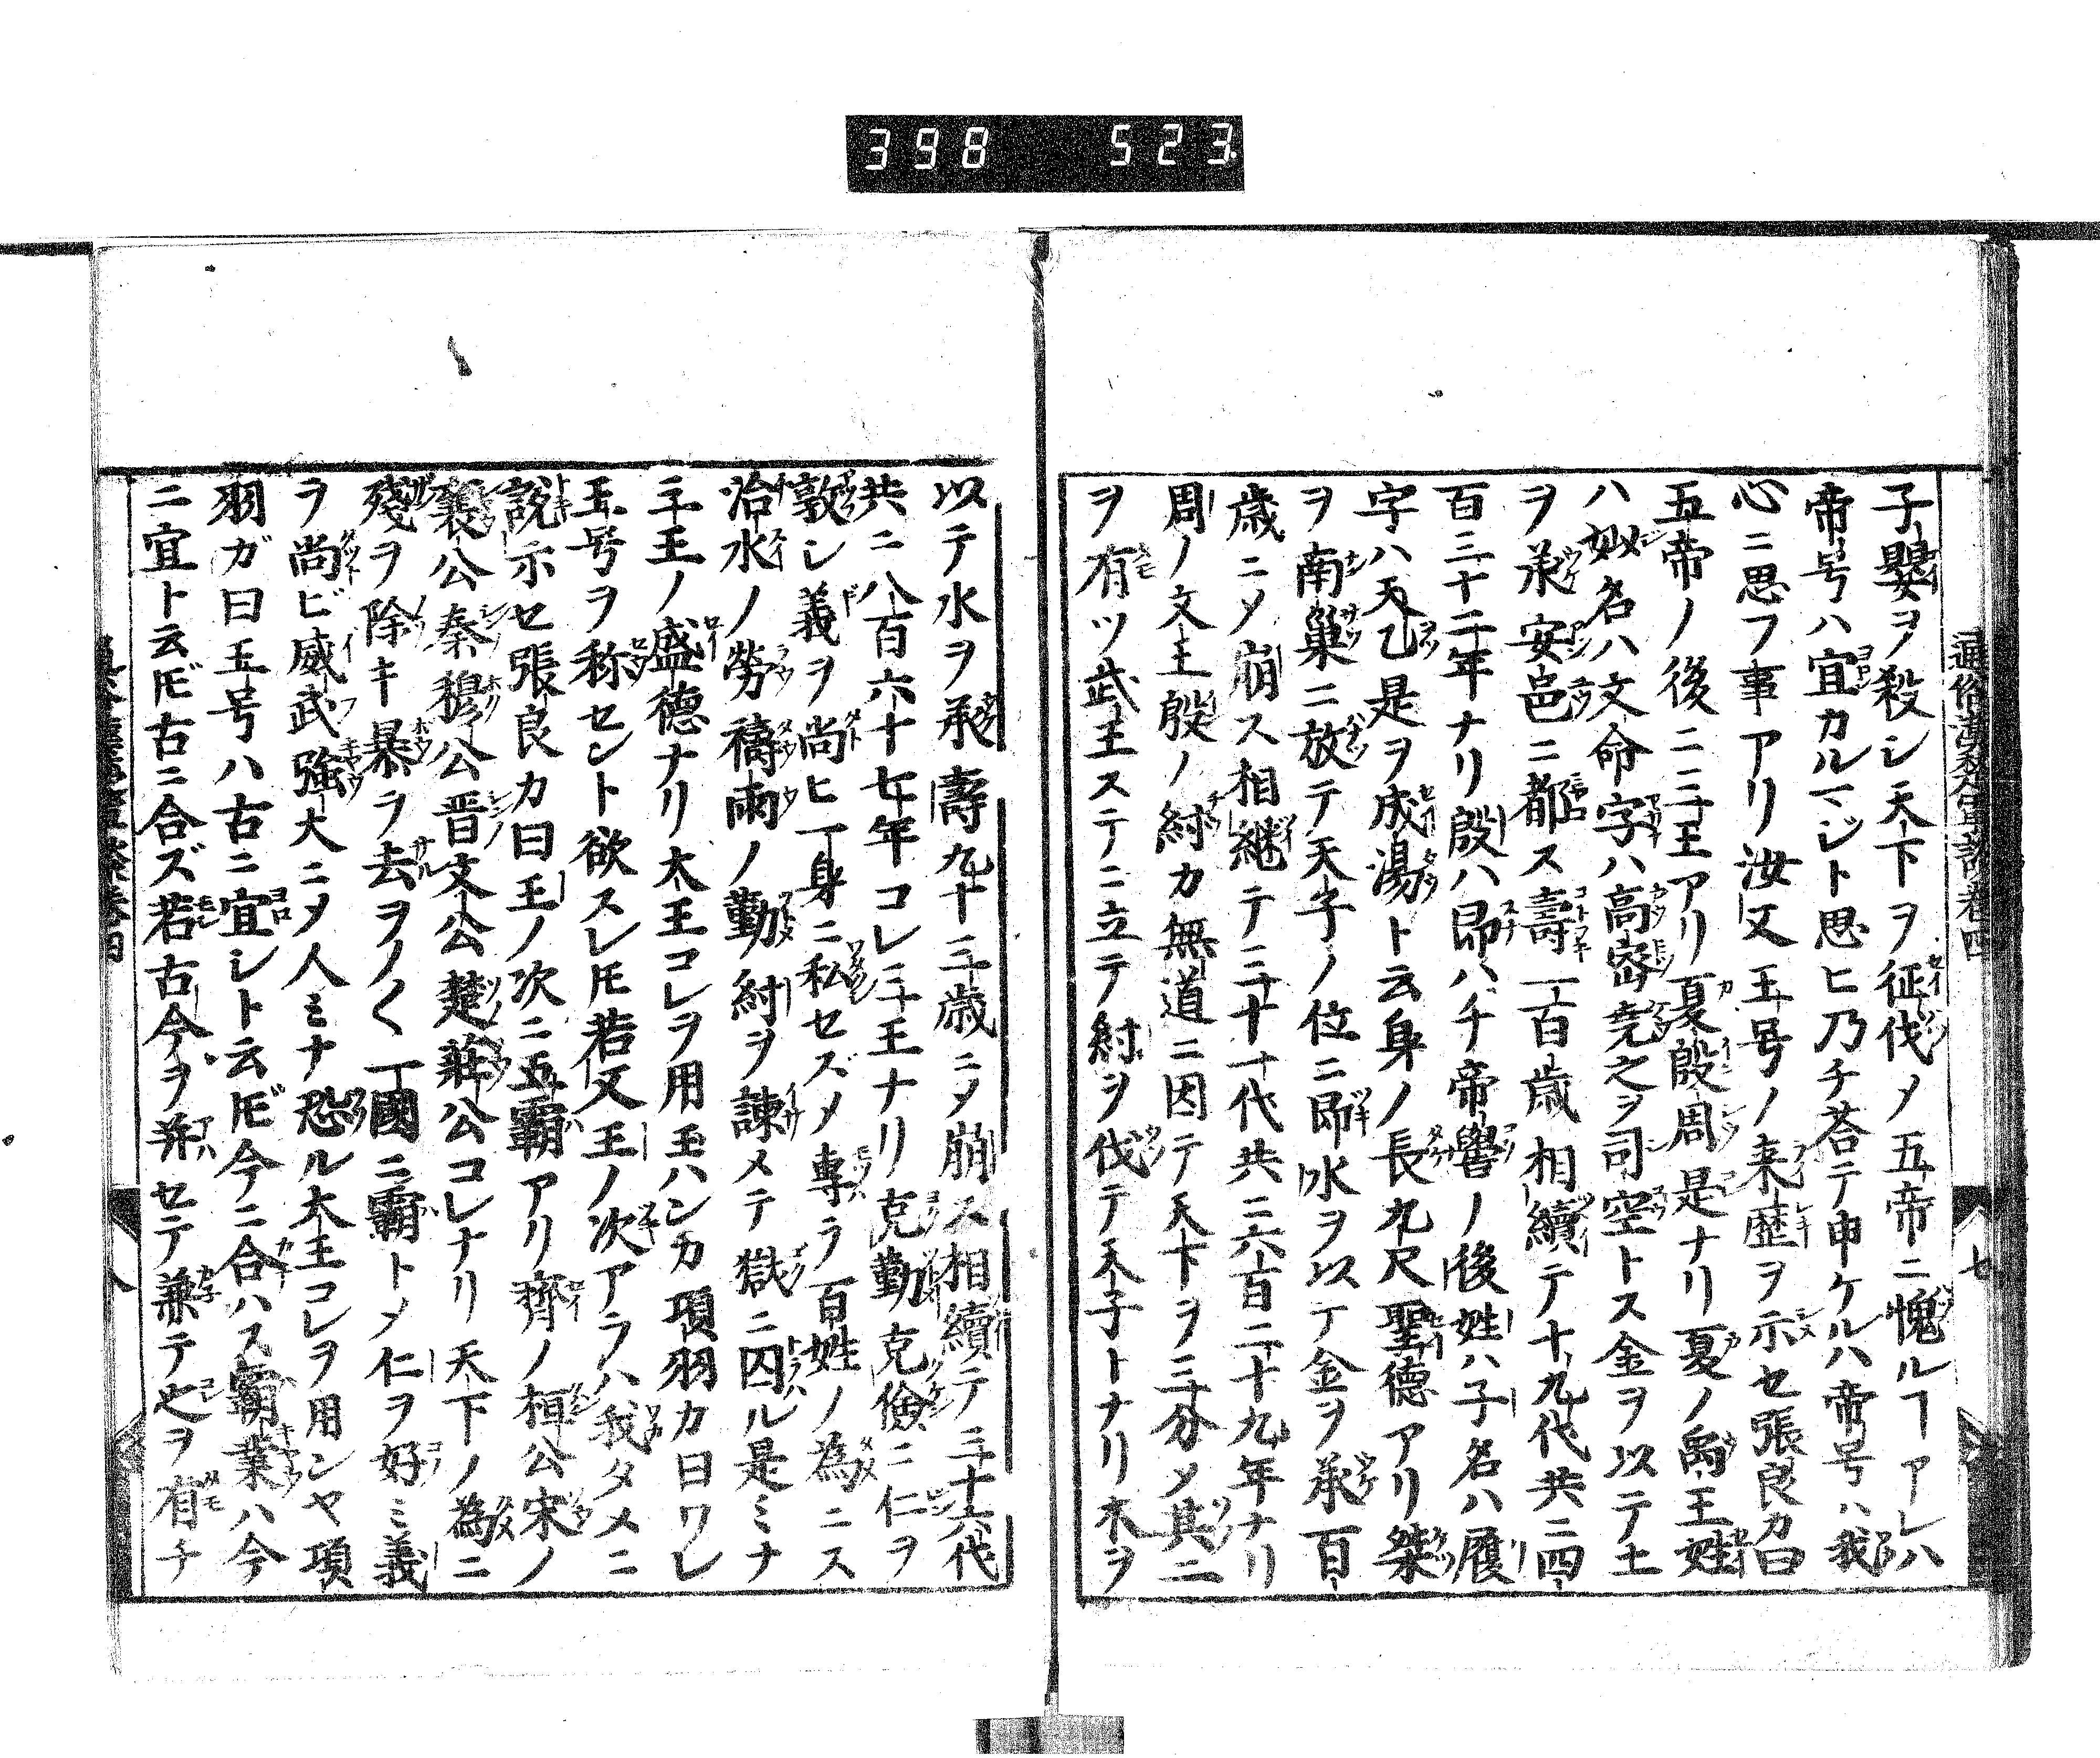 398 523
通俗漢楚軍談卷四
七
子嬰ヲ殺シ天下ヲ征伐メ五帝ニ愧ルヿアレハ
帝号ハ宜カルマジト思ヒ乃チ荅テ申ケルハ帝号ハ我
心ニ思フ事アリ汝又王号ノ来歴ヲ示セ張良カ曰
五帝ノ後ニ三王アリ夏殷周是ナリ夏ノ禹王姓
ハ姒名ハ文命字ハ高密尭之ヲ司空トス金ヲ以テ土
ヲ承安邑ニ都ス壽一百歳相續テ十九代共ニ四
百三十二年ナリ殷ハ昂ハチ帝嚳ノ後姓ハ子名ハ履
字ハ天乙是ヲ成湯ト云身ノ長九尺聖德アリ桀
ヲ南巢ニ放テ天子ノ位ニ即水ヲ以テ金ヲ承百
歳ニメ崩ス相継テ三十一代共ニ六百二十九年ナリ
周ノ文王殷ノ紂カ無道ニ因テ天下ヲ三分メ其二
ヲ有ツ武王ステニ立テ紂ヲ伐テ天子トナリ木ヲ
以テ水ヲ承壽九十三歳ニメ崩ス相續テ三十六代
共ニ八百六十七年コレ三王ナリ克勤克儉ニ仁ヲ
敦シ義ヲ尚ヒ一身ニ私セズメ專ラ百姓ノ為ニス
治水ノ勞禱雨ノ勤紂ヲ諫メテ獄ニ囚ル是ミナ
三王ノ盛德ナリ大王コレヲ用玉ハンカ項羽カ曰ワレ
王号ヲ称セント欲スレ𪜈若又王ノ次アラハ我タメニ
說示セ張良カ曰王ノ次ニ五霸アリ齊ノ桓公宋ノ
襄公秦穆公晋文公楚莊公コレナリ天下ノ為ニ
殘ヲ除キ暴ヲ去ヲノ〱一國ニ霸トメ仁ヲ好ミ義
ヲ尚ビ威武強大ニメ人ミナ恐ル大王コレヲ用ンヤ項
羽ガ曰王号ハ古ニ宜シト云𪜈今ニ合ハス霸業ハ今
ニ宜ト云𪜈古ニ合ズ若古今ヲ并セテ兼テ之ヲ有チ
八